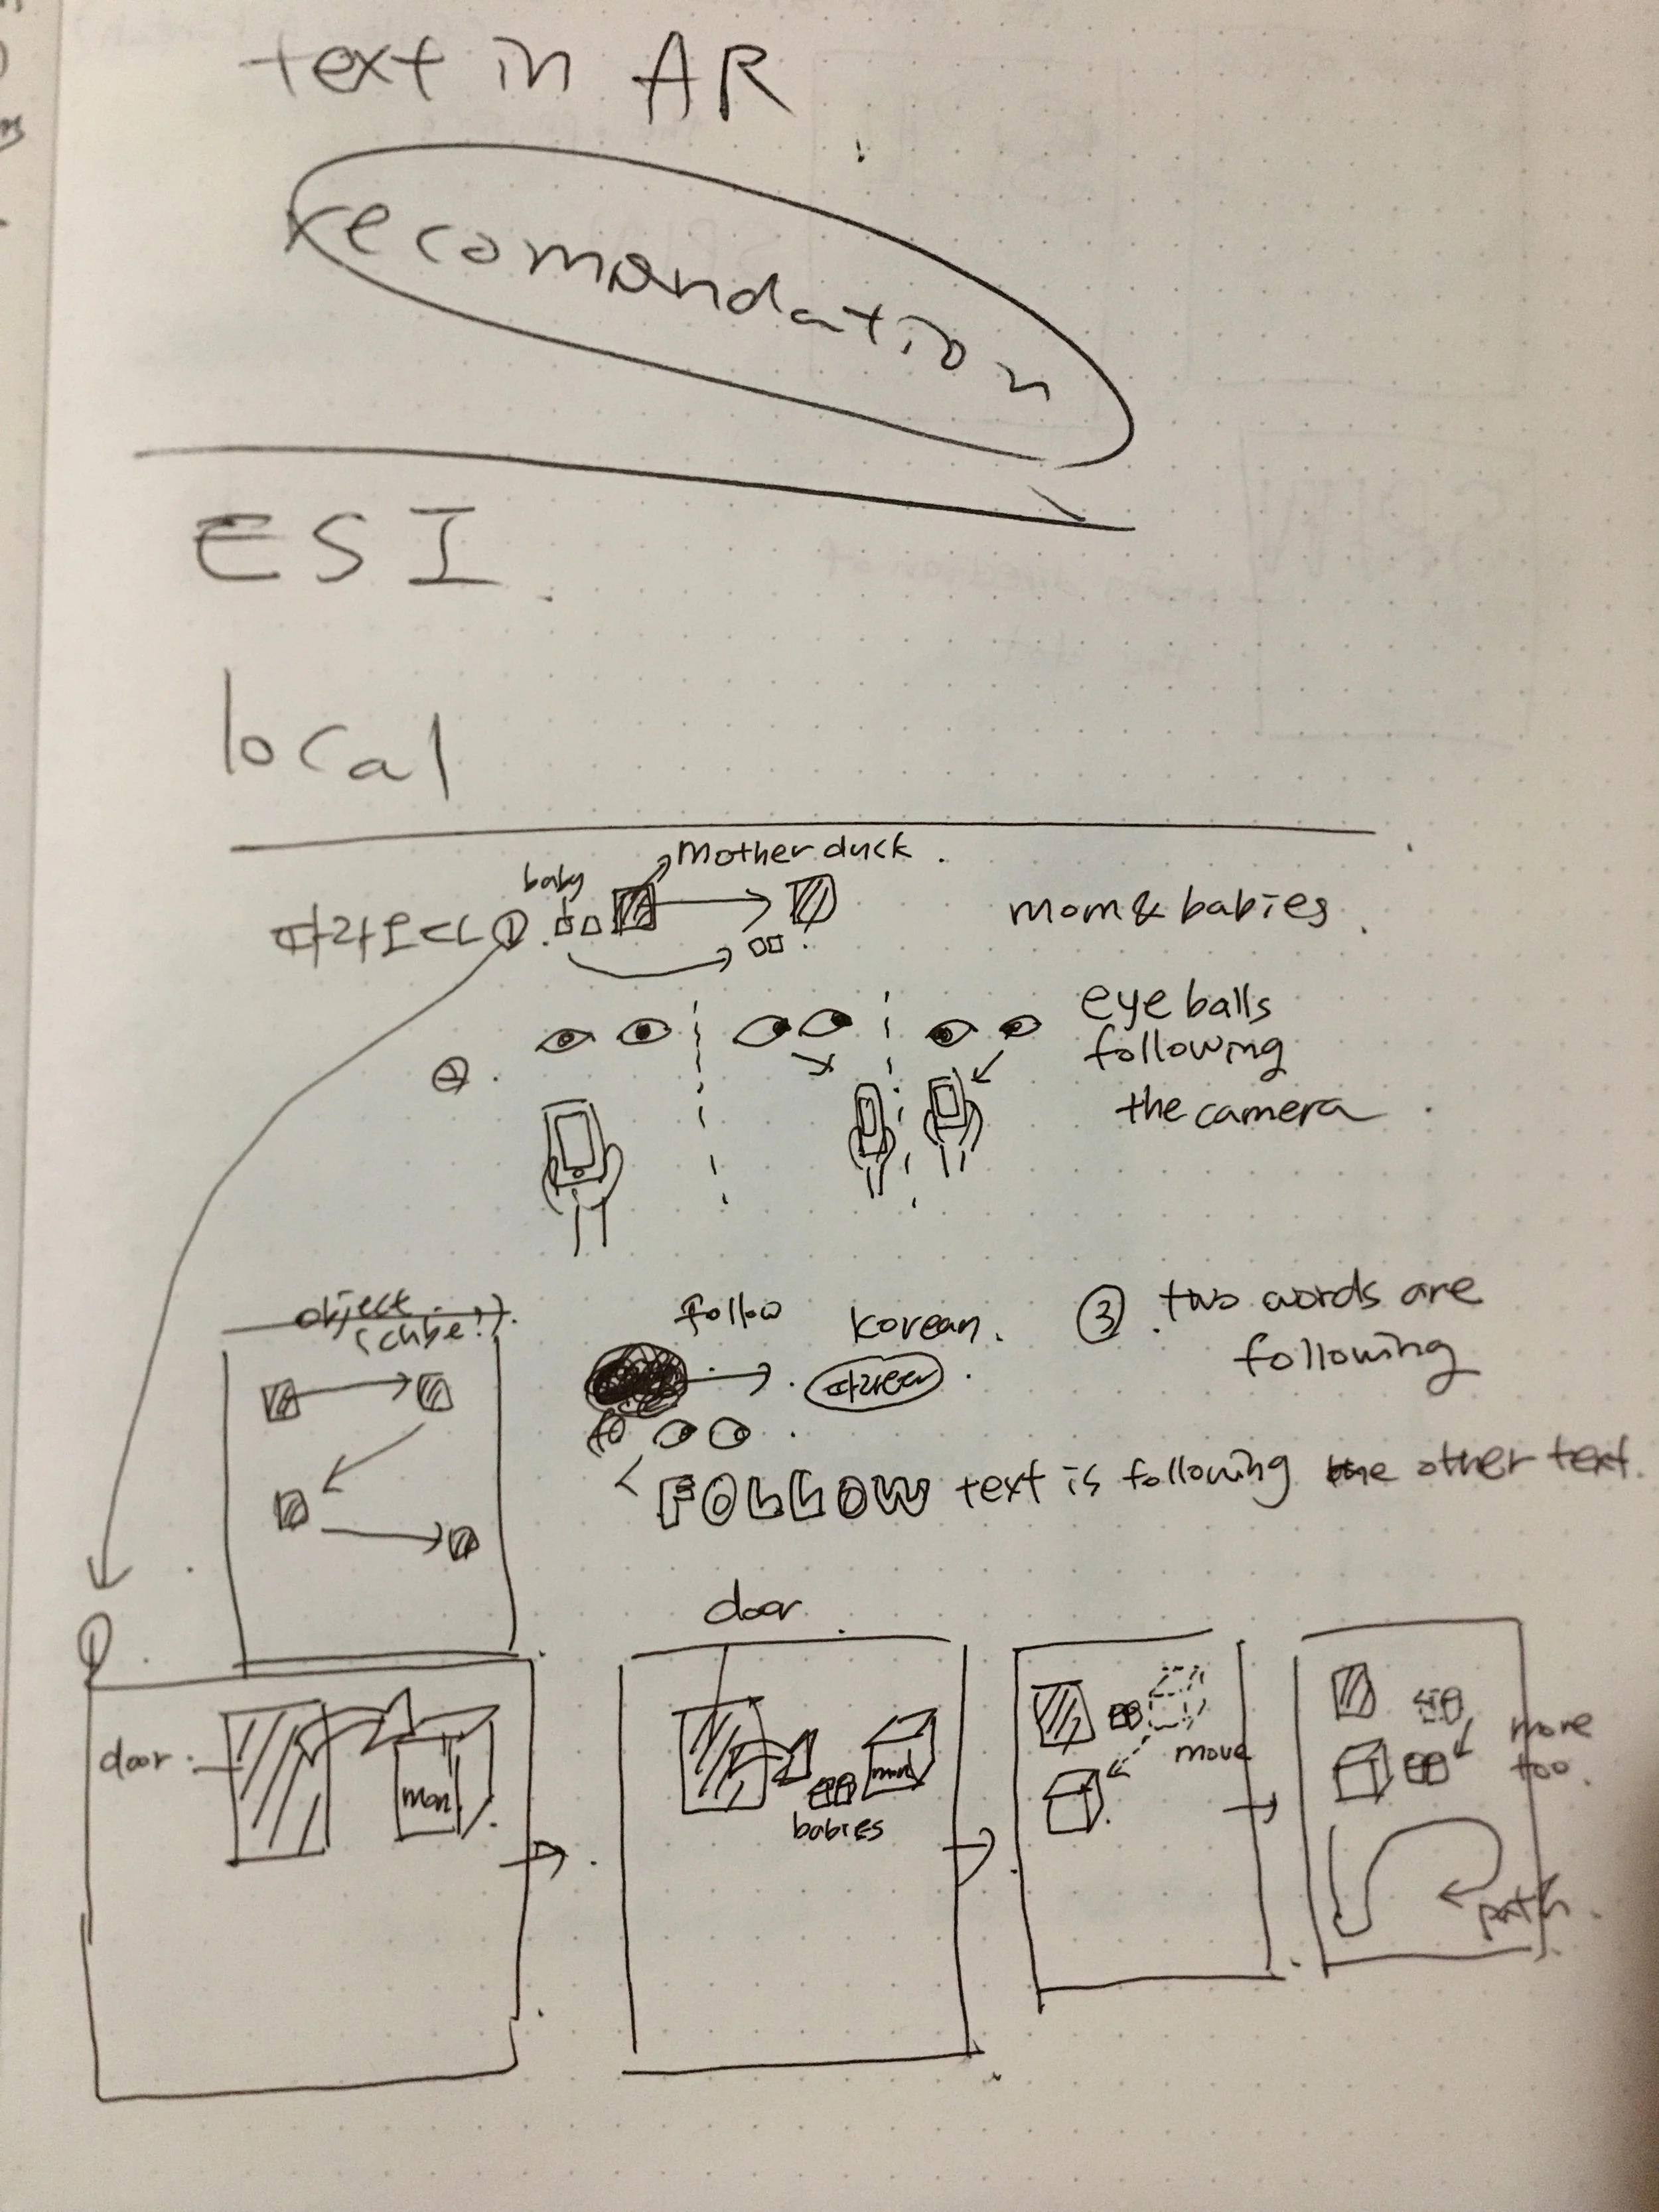 text in AR
recomandation
ESI
local
baby
Mother duck.
따라오다 ①.
mom & babies.
②.
eye balls
following
the camera.
object
(cube!).
follow
korean.
③. two words are
following
FOLLOW text is following the other text.
①.
door
door.
mom
mom
babies
move
move
too.
path.